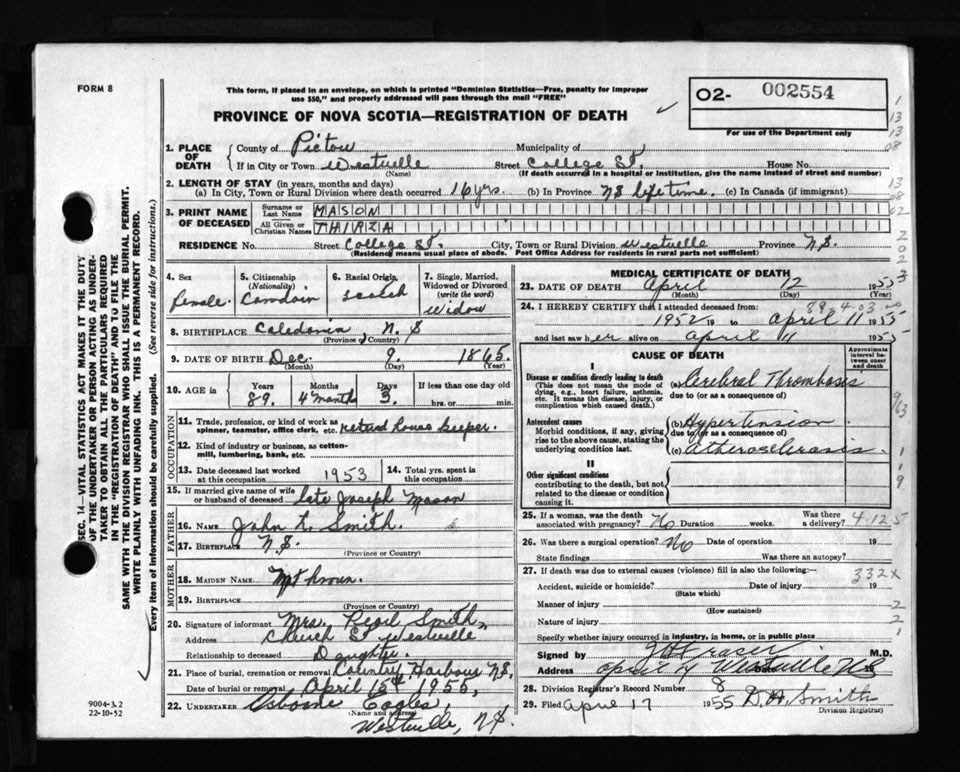 FORM 8
This form, if placed in an envelope, on which is printed "Dominion Statistics—Free, penalty for improper
use $50," and properly addressed will pass through the mail "FREE"
PROVINCE OF NOVA SCOTIA—REGISTRATION OF DEATH
O2- 002554
For use of the Department only
1. PLACE OF DEATH
County of Pictou Municipality of
If in City or Town Westville Street College St. House No.
(Name) (If death occurred in a hospital or institution, give its name instead of street and number)
2. LENGTH OF STAY (in years, months and days)
(a) In City, Town or Rural Division where death occurred 16 yrs. (b) In Province NS lifetime. (c) In Canada (if immigrant)
3. PRINT NAME OF DECEASED
Surname or Last Name MASON
All Given or Christian Names THIRZA
RESIDENCE No. Street College St. City, Town or Rural Division Westville Province N.S.
(Residence means usual place of abode. Post Office Address for residents in rural parts not sufficient)
4. Sex
female
5. Citizenship
(Nationality)
6. Racial Origin
7. Single, Married,
Widowed or Divorced
(write the word)
Widow
8. BIRTHPLACE Caledonia, N.S
(Province or Country)
9. DATE OF BIRTH Dec. 9. 1865.
(Month) (Day) (Year)
10. AGE in
Years Months Days If less than one day old
89. 4 months 3. hrs. or min.
OCCUPATION
11. Trade, profession, or kind of work as
spinner, teamster, office clerk, etc. retired house keeper.
12. Kind of industry or business, as cotton-
mill, lumbering, bank, etc.
13. Date deceased last worked
at this occupation 1953
14. Total yrs. spent in
this occupation
15. If married give name of wife
or husband of deceased late Joseph Mason
FATHER
16. Name John L. Smith.
17. Birthplace N.S.
(Province or Country)
MOTHER
18. Maiden Name Not known.
19. Birthplace
(Province or Country)
20. Signature of informant Mrs. Smith,
Address Church St Westville
Relationship to deceased Daughter.
21. Place of burial, cremation or removal Country Harbour NS.
Date of burial or removal April 15th 1955,
22. UNDERTAKER Osborne Eagles,
(Name and address)
Westville, N.S.
MEDICAL CERTIFICATE OF DEATH
23. DATE OF DEATH April 12 1955
(Month) (Day) (Year)
24. I HEREBY CERTIFY that I attended deceased from:
1952 19 to April 11 1955
and last saw her alive on April 11 1955
CAUSE OF DEATH
Approximate interval between onset and death
I
Disease or condition directly leading to death
(This does not mean the mode of
dying, e.g., heart failure, asthenia,
etc. It means the disease, injury, or
complication which caused death.)
(a) Cerebral Thrombosis
due to (or as a consequence of)
Antecedent causes
Morbid conditions, if any, giving
rise to the above cause, stating the
underlying condition last.
(b) Hypertension
due to (or as a consequence of)
(c) Atherosclerosis.
II
Other significant conditions
contributing to the death, but not
related to the disease or condition
causing it.
25. If a woman, was the death
associated with pregnancy? No Duration weeks. Was there
a delivery? 4.125
26. Was there a surgical operation? No Date of operation 19
State findings Was there an autopsy?
27. If death was due to external causes (violence) fill in also the following:-
332X
Accident, suicide or homicide? Date of injury 19
(State which)
Manner of injury
(How sustained)
Nature of injury
Specify whether injury occurred in industry, in home, or in public place
Signed by M.D.
Address Westville NS
28. Division Registrar's Record Number 8
29. Filed April 17 1955 D.A. Smith
Division Registrar)
SEC. 14—VITAL STATISTICS ACT MAKES IT THE DUTY
OF THE UNDERTAKER OR PERSON ACTING AS UNDER-
TAKER TO OBTAIN ALL THE PARTICULARS REQUIRED
IN THE "REGISTRATION OF DEATH" AND TO FILE THE
SAME WITH THE DIVISION REGISTRAR WHO SHALL ISSUE THE BURIAL PERMIT.
WRITE PLAINLY WITH UNFADING INK. THIS IS A PERMANENT RECORD.
Every item of information should be carefully supplied. (See reverse side for instructions.)
9004-3.2
22-10-52